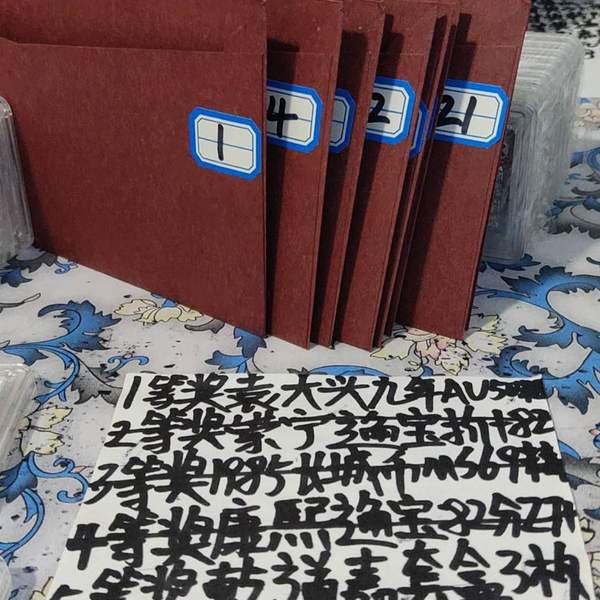 1
4
2
21
1等奖袁大头九年AU50
2等奖崇宁通宝折十82
3等奖1985长城币MS69
4等奖康熙通宝82分
5等奖乾道套盒3枚